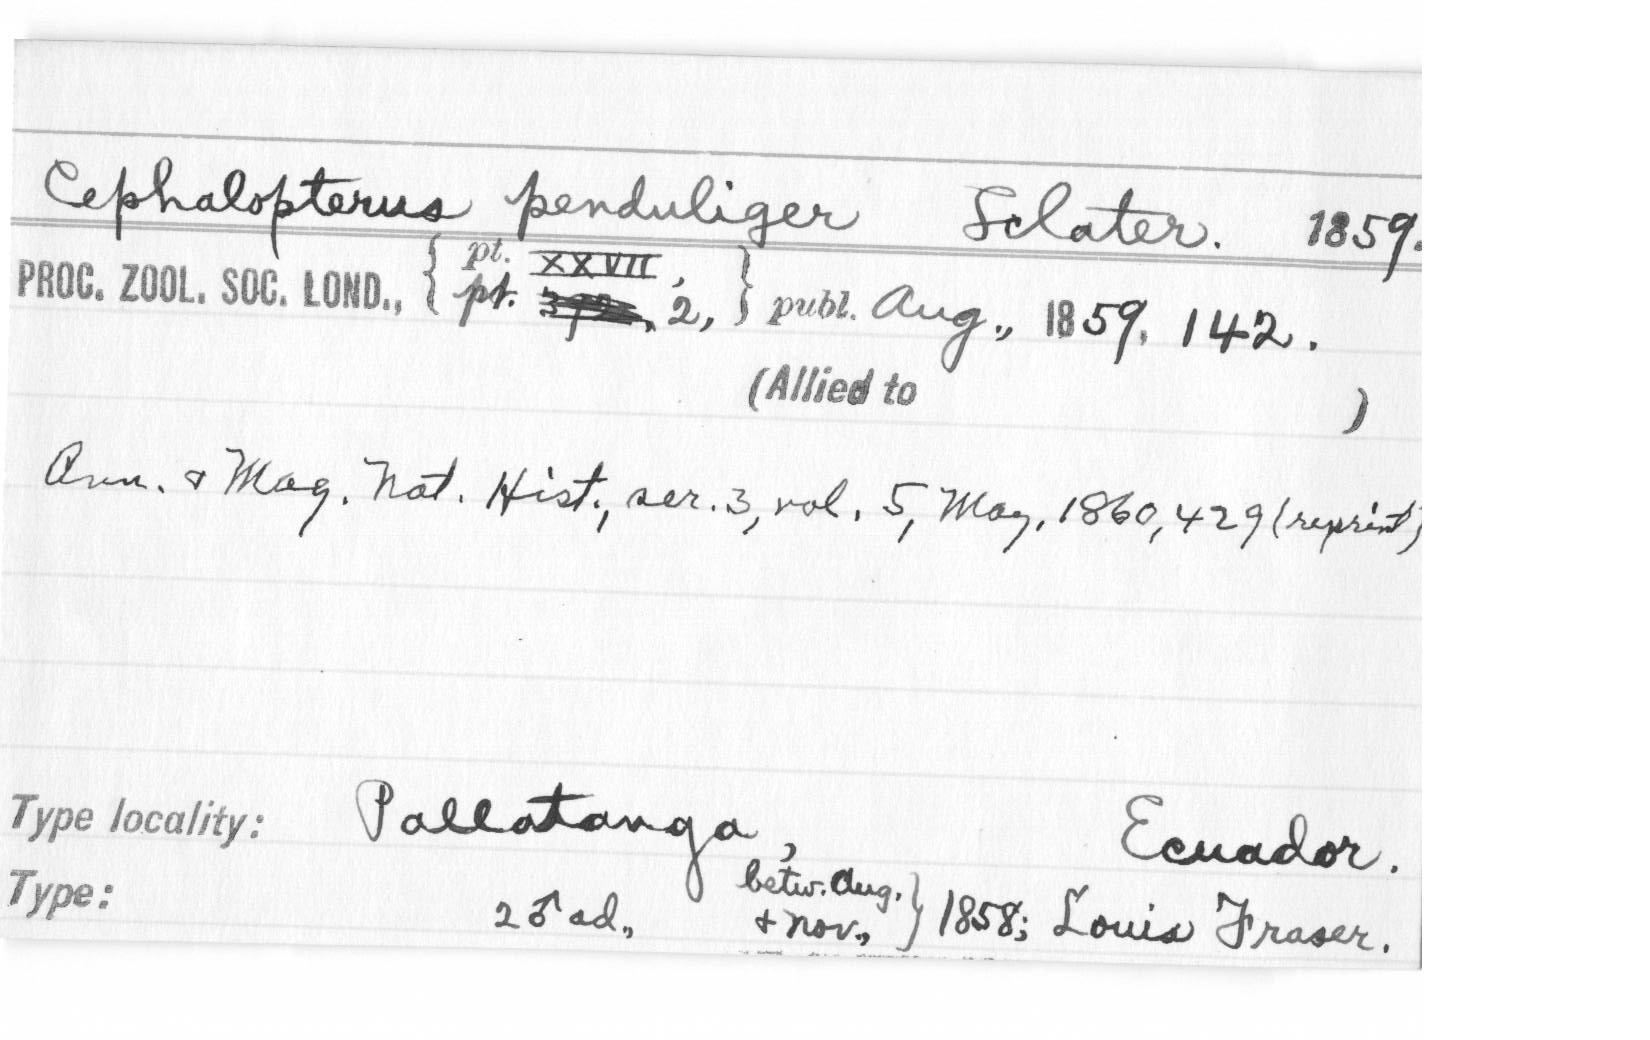 Cephalopterus penduliger Sclater. 1859.
PROC. ZOOL. SOC. LOND., { pt. XXVII, pt. 2, } publ. Aug., 1859, 142.
(Allied to )
Ann. & Mag. Nat. Hist., ser. 3, vol. 5, May, 1860, 429 (reprint)
Type locality: Pallatanga, Ecuador.
Type: 2 ♂ ad., betw. Aug. & Nov., } 1858; Louis Fraser.